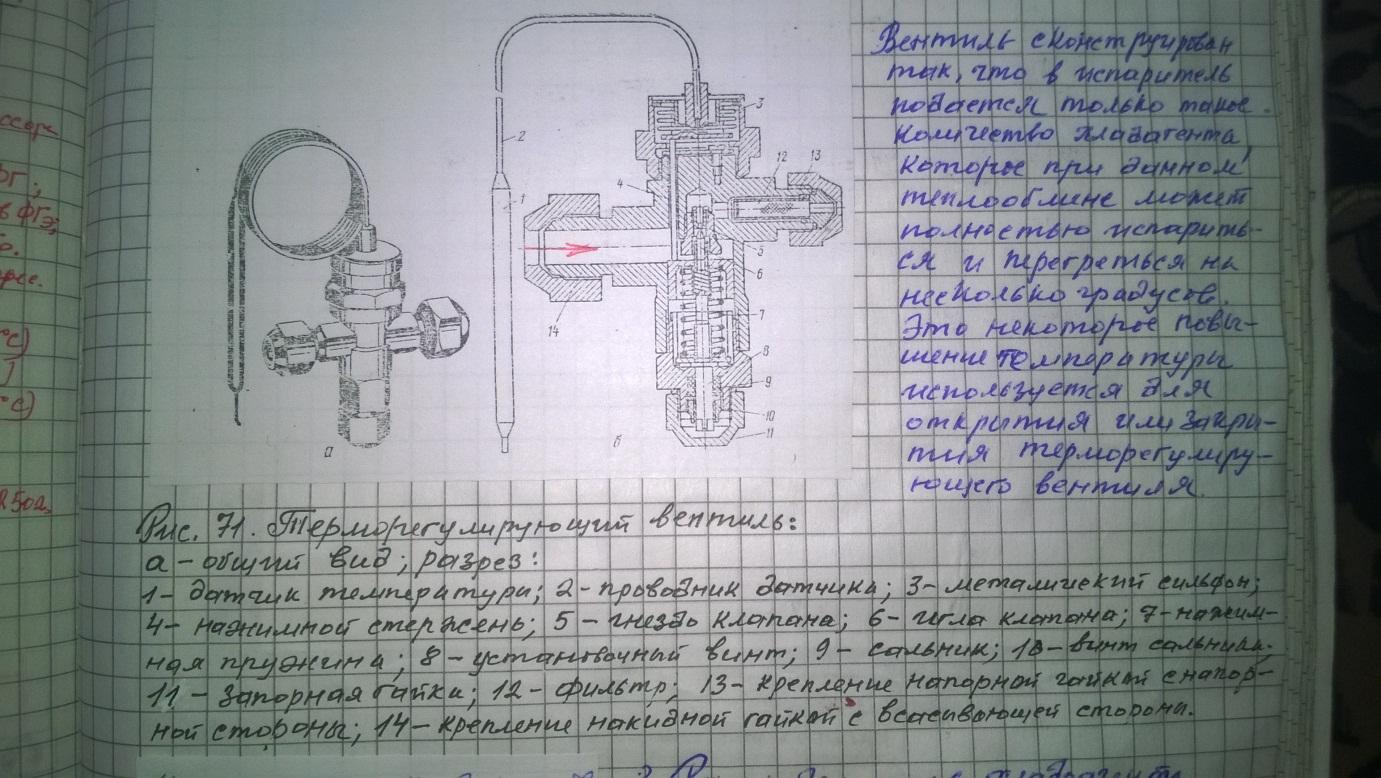 ссоре
ФГЭ;
°С)
)
°С)
R502.
Вентиль сконструирован
так, что в испаритель
подается только такое
количество хладагента,
которое при данном
теплообмене может
полностью испарить-
ся и перегреться на
несколько градусов.
Это некоторое повы-
шение температуры
используется для
открытия или закры-
тия терморегулиру-
ющего вентиля.
3
2
12 13
4
1
5
6
7
14
8
9
10
11
а
б
Рис. 71. Терморегулирующий вентиль:
а – общий вид; разрез:
1 – датчик температуры; 2 – проводник датчика; 3 – металический сильфон;
4 – нажимной стержень; 5 – гнездо клапана; 6 – игла клапана; 7 – нажим-
ная пружина; 8 – установочный винт; 9 – сальник; 10 – винт сальника;
11 – запорная гайка; 12 – фильтр; 13 – крепление напорной гайкой с напор-
ной стороны; 14 – крепление накидной гайкой с всасывающей стороны.